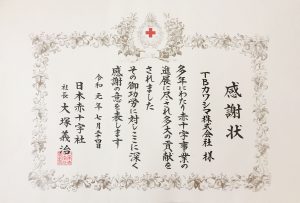 感謝状
TBカワシマ株式会社 様
多年にわたり赤十字事業の
進展に尽され多大の貢献を
されました
その御功労に対しここに深く
感謝の意を表します
令和元年七月二十四日
日本赤十字社
社長 大塚義治